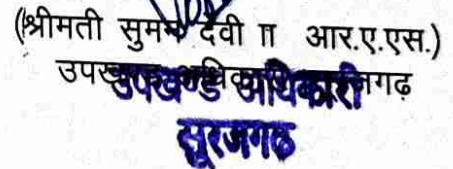 (श्रीमती सुमन देवी II आर.ए.एस.)
उपखण्ड अधिकारी सूरजगढ़
उपखण्ड अधिकारी
सूरजगढ